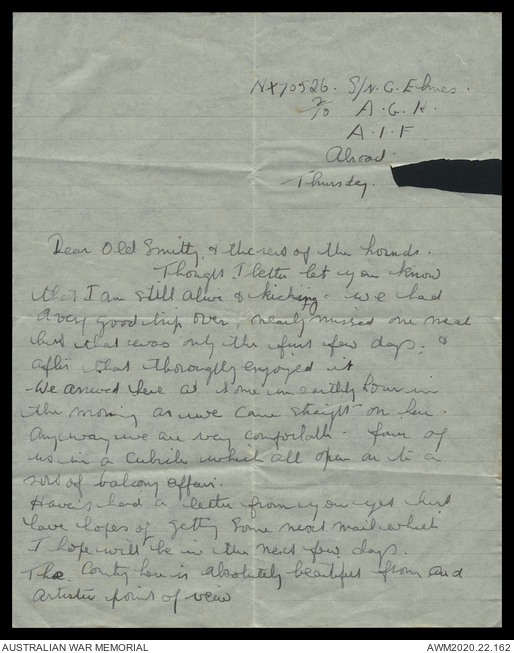 NX70526. S/N. G. Elmes.
2/10 A.G.H.
A.I.F.
Abroad.
Thursday.
Dear Old Smitty, & the rest of the hounds.
Thought I better let you know
that I am still alive & kicking. we had
a very good trip over, nearly missed one meal
but that was only the first few days, &
after that thoroughly enjoyed it
We arrived here at some unearthly hour in
the morning as we came straight on here.
Anyway we are very comfortable - four of
us in a cubicle which all open on to a
sort of balcony affair.
Haven't had a letter from you yet but
have hopes of getting some next mail which
I hope will be in the next few days.
The County here is absolutely beautiful from and
artistic point of view
AUSTRALIAN WAR MEMORIAL
AWM2020.22.162